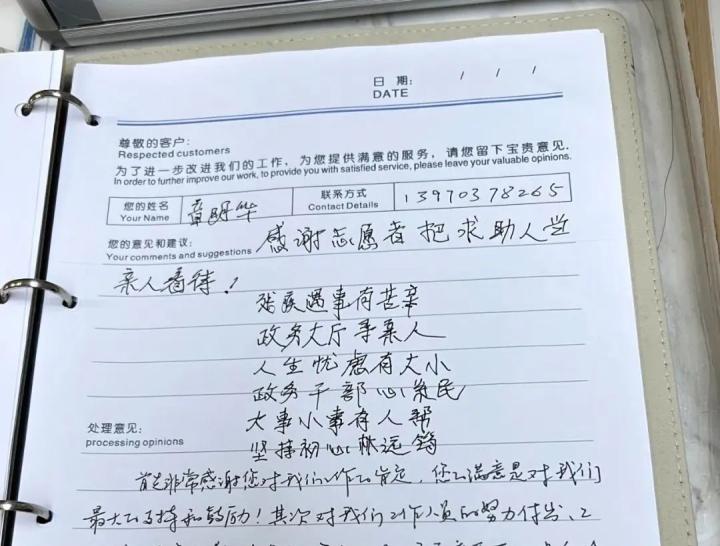 日 期: / / /
DATE
尊敬的客户:
Respected customers
为了进一步改进我们的工作，为您提供满意的服务，请您留下宝贵意见.
In order to further improve our work, to provide you with satisfied service, please leave your valuable opinions.
您的姓名 章明华 联系方式 13970378265
Your Name Contact Details
您的意见和建议: 感谢志愿者把求助人当
Your comments and suggestions
亲人看待！
残疾遇事有苦辛
政务大厅寻亲人
人生忧虑有大小
政务干部心系民
大事小事有人帮
处理意见:
processing opinions
坚持初心
首先非常感谢您对我们工作的肯定，您的满意是对我们
最大的支持和鼓励！其次对我们工作人员的努力付出